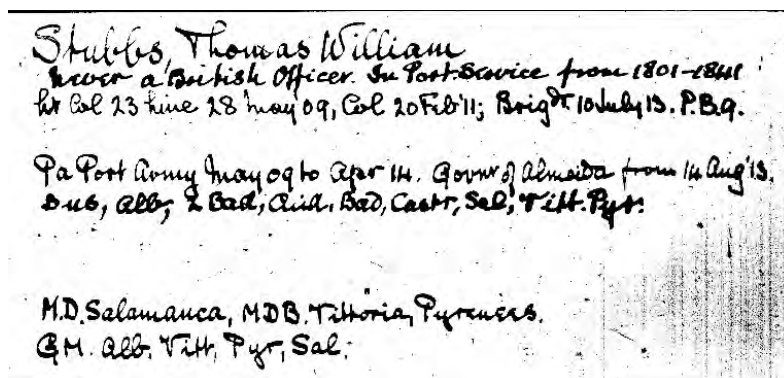 Stubbs, Thomas William
Never a British Officer. In Port. Service from 1801-1841
Lt Col 23 Line 28 May 09, Col 20 Feb '11; Brigdr 10 July 13. P.B.9.
Pa Port Army May 09 to Apr 14. Govnr of Almeida from 14 Aug '13.
Bus, Alb, 2 Bad, Ciud, Bad, Castr, Sal, Vitt. Pyr.
M.D. Salamanca, MDB. Vittoria, Pyrenees.
G.M. Alb, Vitt, Pyr, Sal,